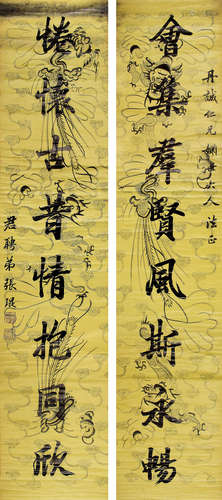 丹誠仁兄姻大人法正
會集羣賢風斯承暢
惓懷古昔情抱同欣
君聘弟張琨